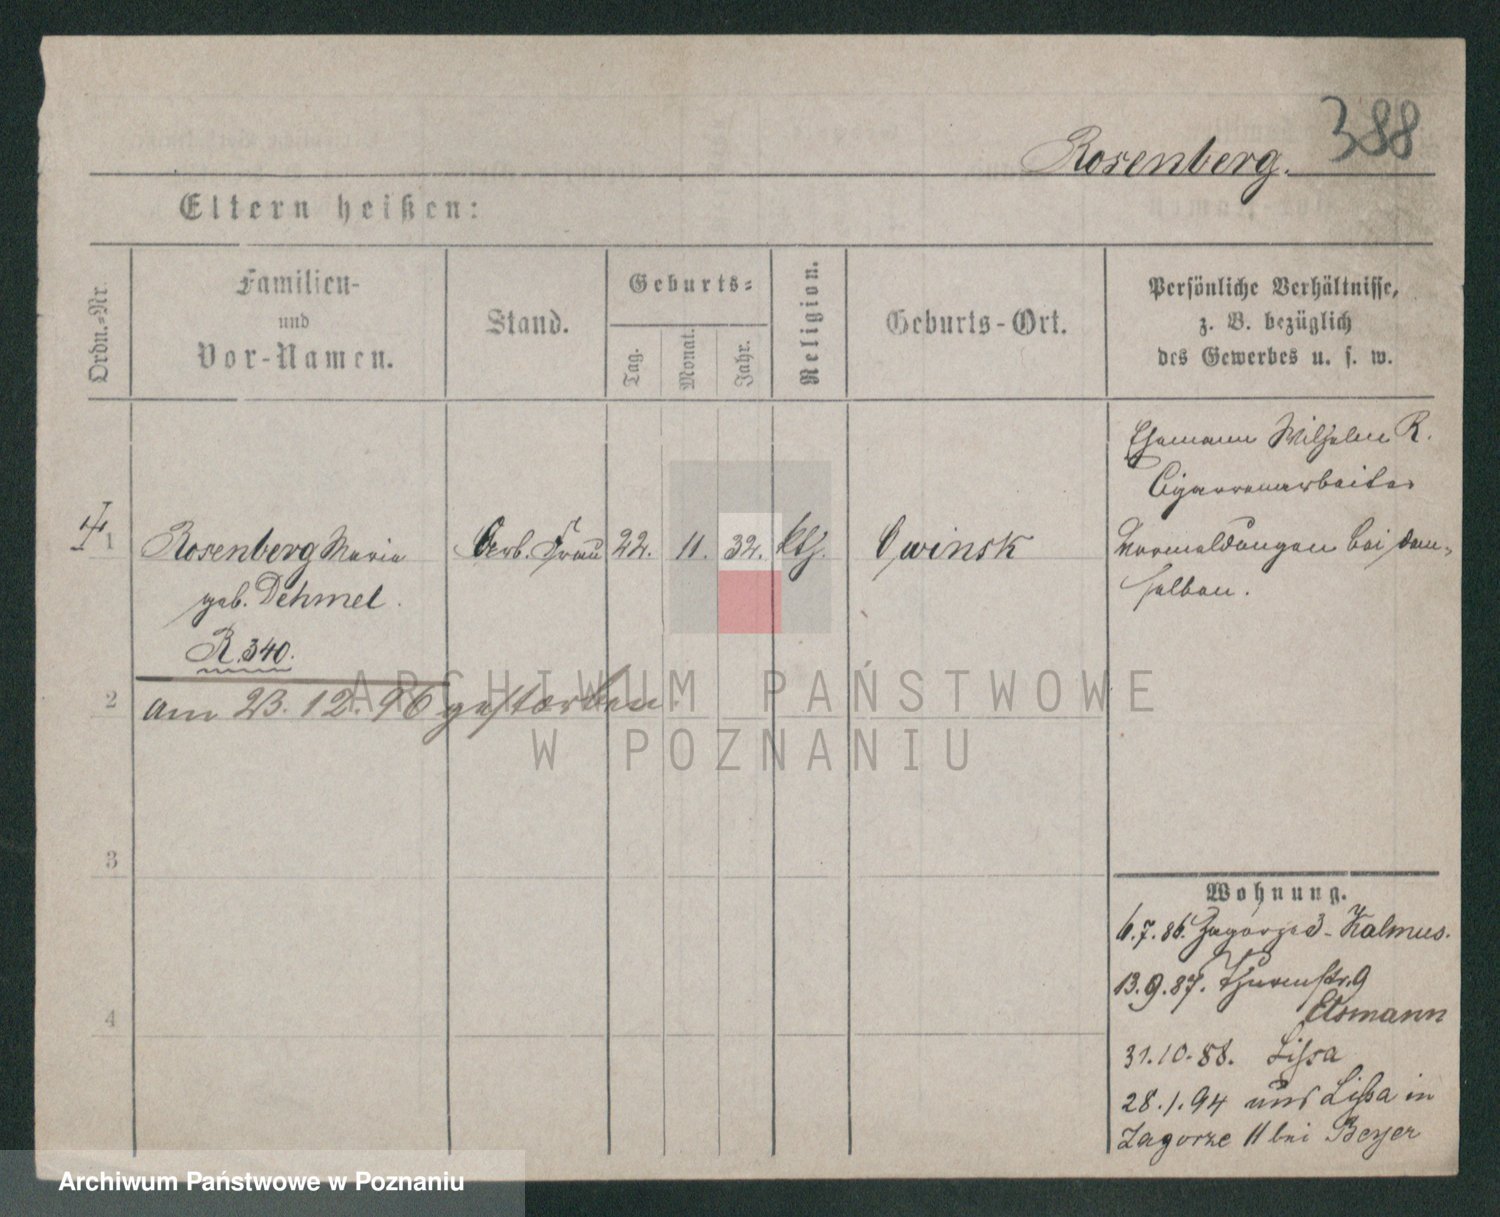 388
Rosenberg.
Eltern heißen:
Ordn.-Nr.
Familien-
und
Vor-Namen.
Stand.
Geburts-
Tag.
Monat.
Jahr.
Religion.
Geburts-Ort.
Persönliche Verhältnisse,
z. B. bezüglich
des Gewerbes u. s. w.
Ehemann Wilhelm R.
Cigarrenarbeiter
1 Rosenberg Maria Verb. Frau 22. 11. 32. kth. Owinsk Vormeldungen bei dem-
geb. Dehmel. selben.
R. 340.
2 am 23.12.96 gestorben.
3
4
Wohnung.
6.7.86. Zagorze 3 - Kalmus.
13.9.87. Thurmstr. 9
Elsmann
31.10.88. Lissa
28.1.94 aus Lissa in
Zagorze 11 bei Beyer
ARCHIWUM PAŃSTWOWE
W POZNANIU
Archiwum Państwowe w Poznaniu